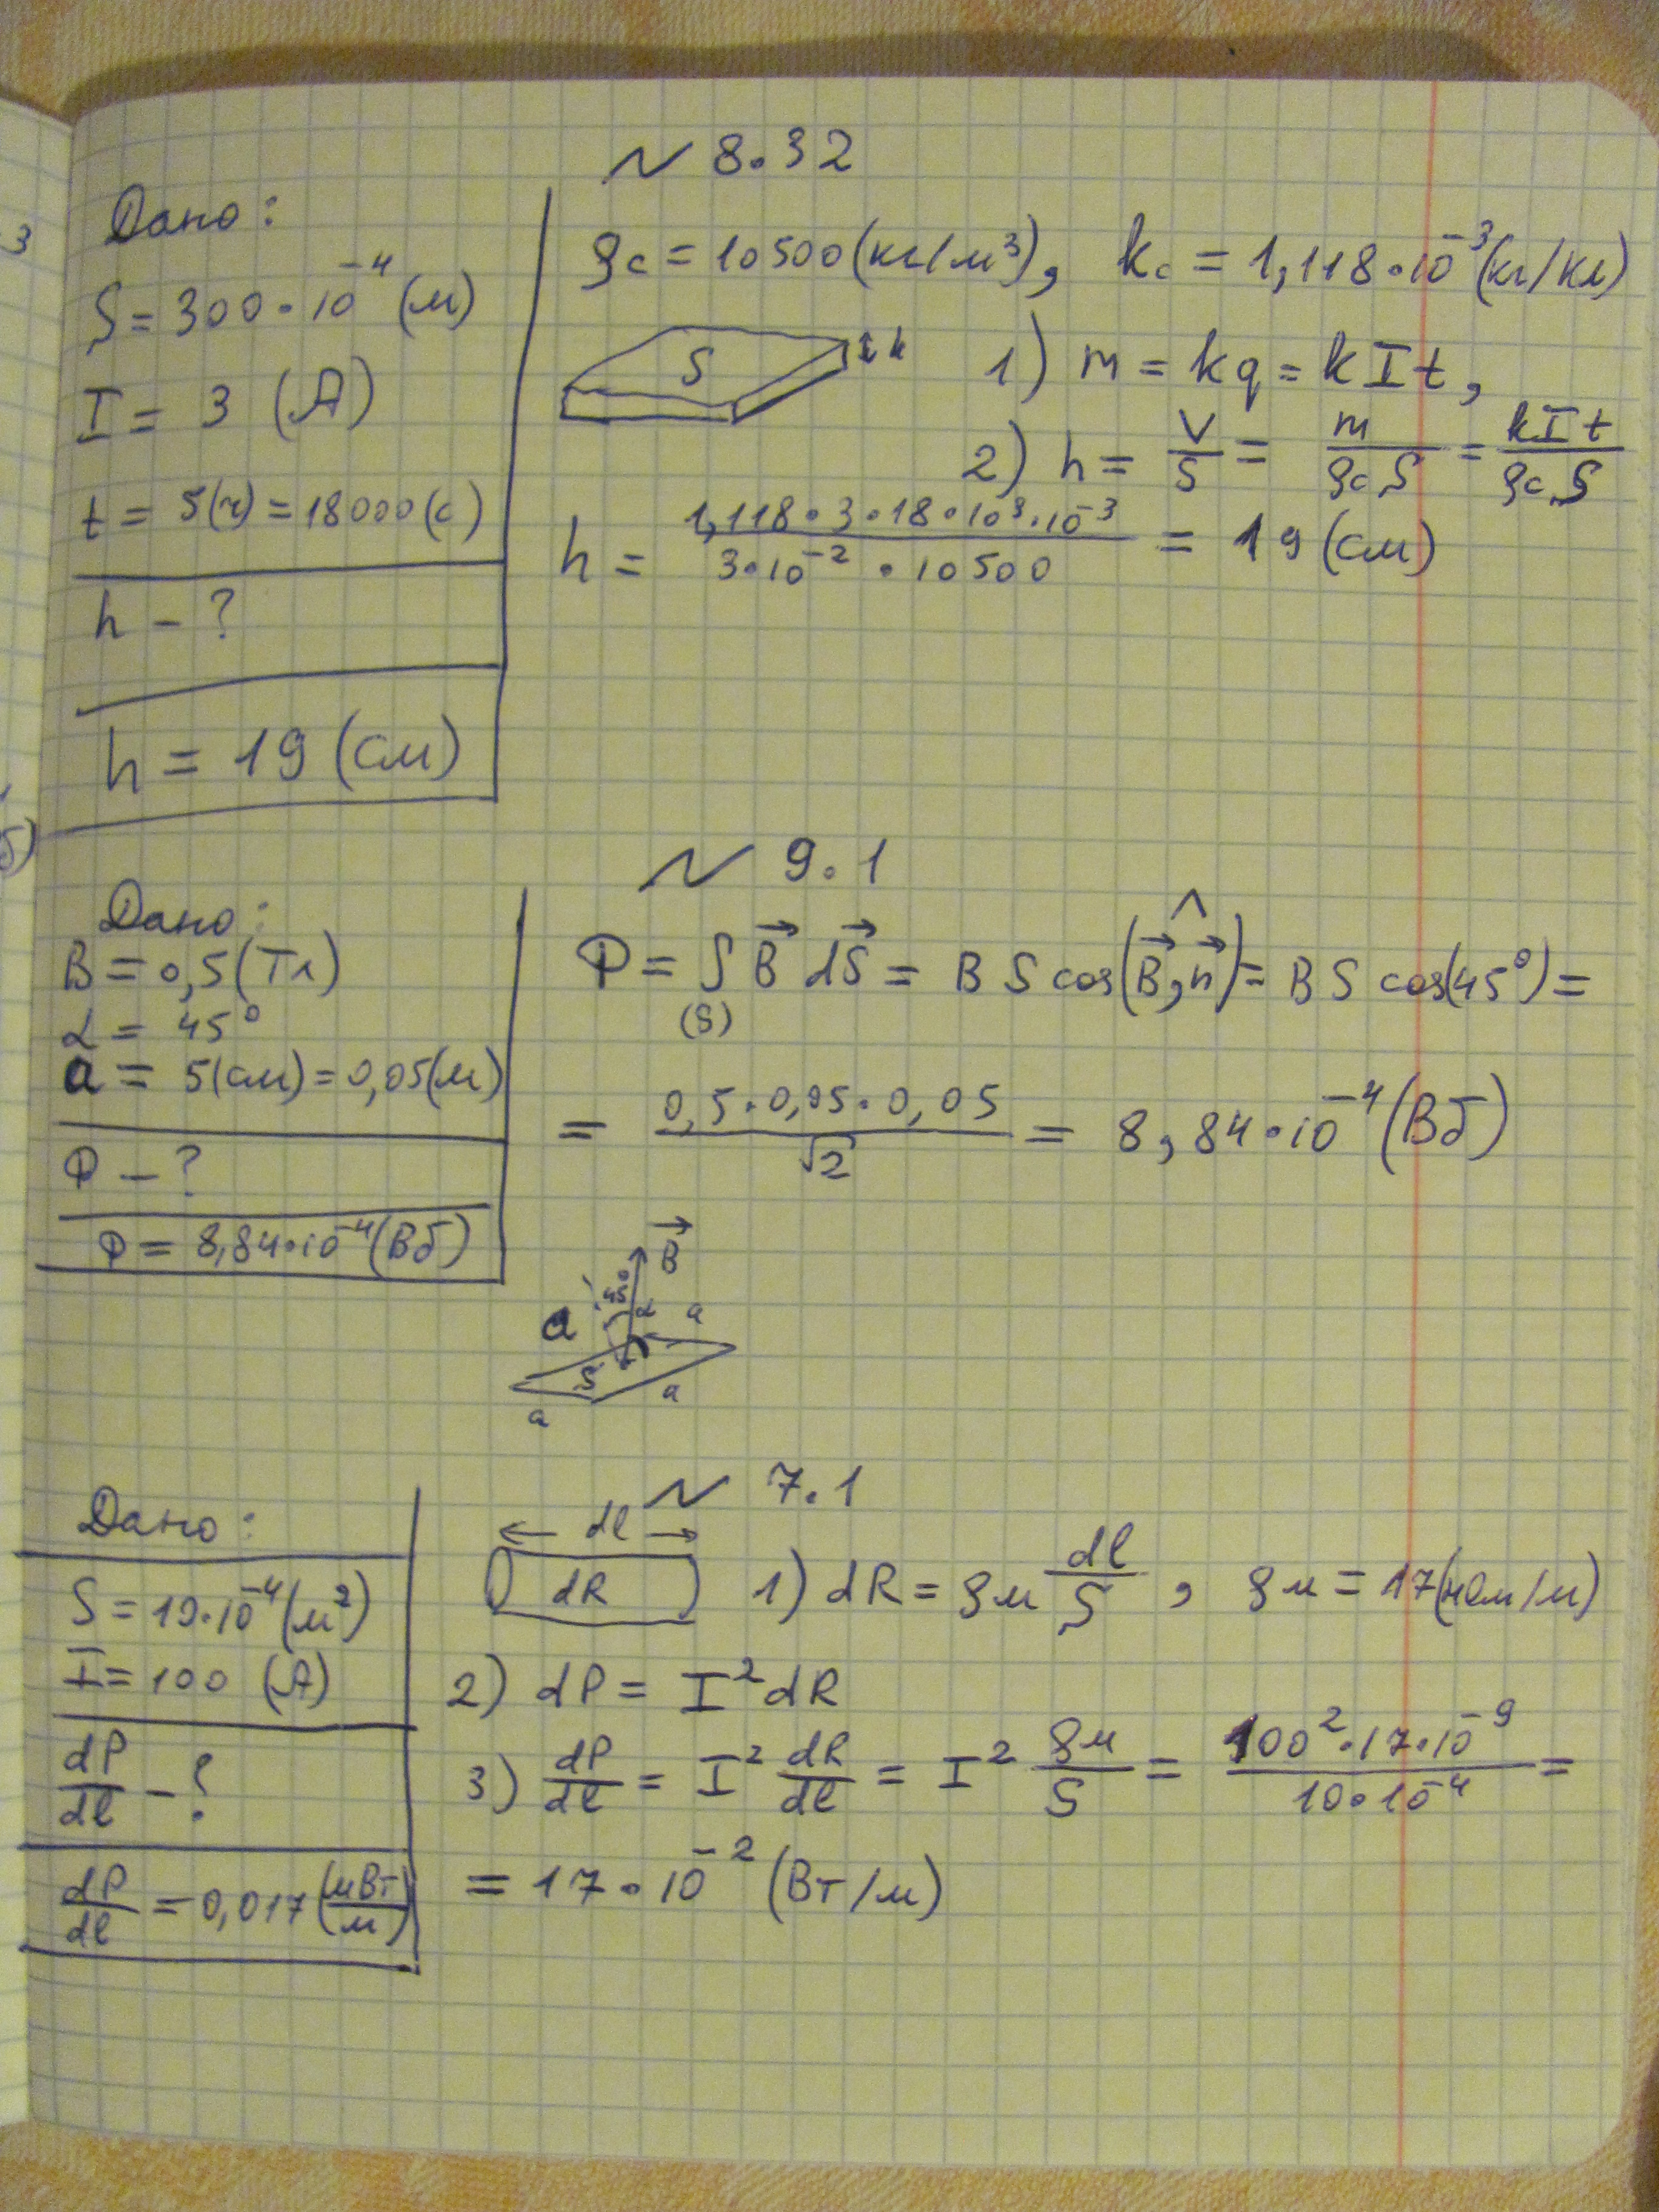 N 8.32
Дано:
S = 300·10⁻⁴ (м)
I = 3 (А)
t = 5(ч) = 18000(с)
h - ?
h = 19 (см)
ρс = 10500 (кг/м³), kс = 1,118·10⁻³ (кг/Кл)
S h
1) m = kq = kIt,
2) h = V/S = m/ρсS = kIt/ρсS
h = 1,118·3·18·10³·10⁻³ / 3·10⁻²·10500 = 19 (см)
N 9.1
Дано:
B = 0,5 (Тл)
α = 45°
a = 5(см) = 0,05(м)
Ф - ?
Ф = 8,84·10⁻⁴ (Вб)
Ф = ∫(S) B⃗ dS⃗ = B S cos(B⃗,^n⃗) = B S cos(45°) =
= 0,5·0,05·0,05 / √2 = 8,84·10⁻⁴ (Вб)
B⃗
45° α
a a
S
a a
N 7.1
Дано:
S = 10·10⁻⁴ (м²)
I = 100 (А)
dP/dl - ?
dP/dl = 0,017 (мВт/м)
dl
dR
1) dR = ρм dl/S , ρм = 17(нОм/м)
2) dP = I² dR
3) dP/dl = I² dR/dl = I² ρм/S = 100²·17·10⁻⁹ / 10·10⁻⁴ =
= 17·10⁻² (Вт/м)